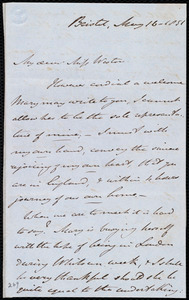 Bristol, May 16 - 1851
My dear Miss Weston
However cordial a welcome
Mary may write to you, I cannot
allow her to be the sole representa-
tive of mine, - I must with
my own hand, convey the sincere
rejoicing of my own heart that you
are in England, & within 4 hours
journey of our own home -
When we are to meet it is hard
to say. Mary is buoying herself
with the hope of being in London
during Whitsun week, & I should
be very thankful should she be
quite equal to the undertaking